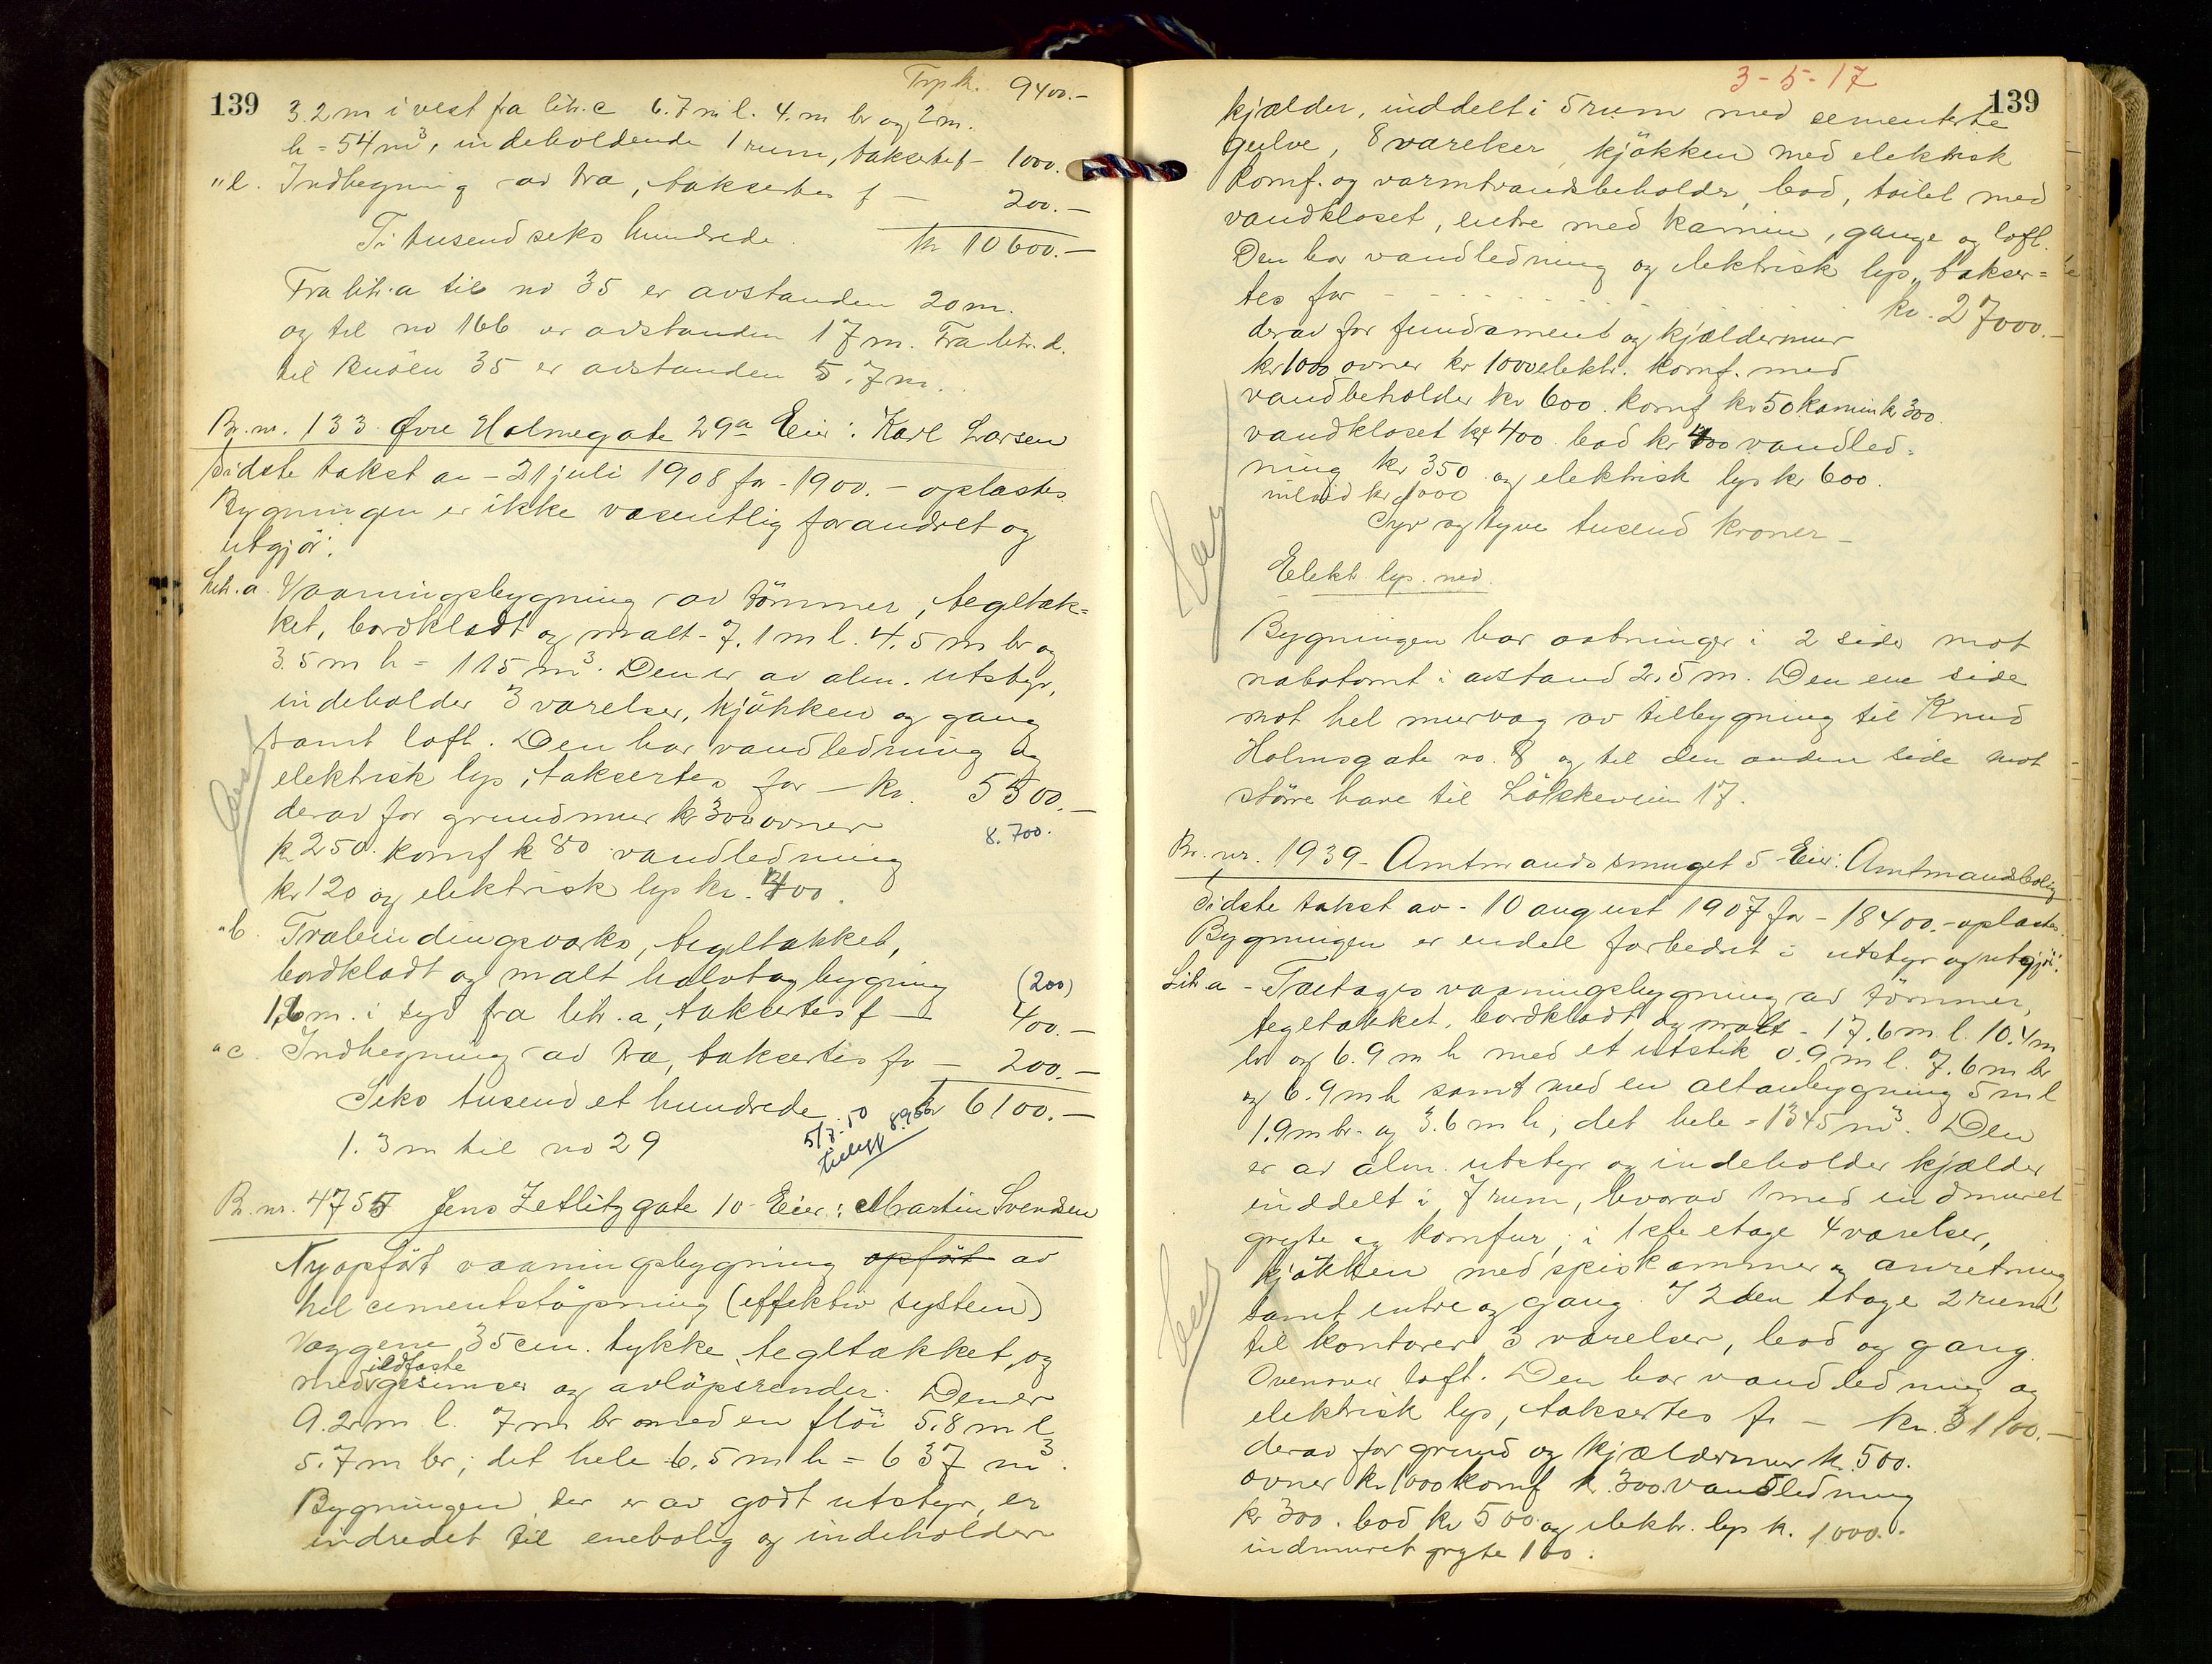 139
Trp kr. 9400.-
3.2 m i vest fra litr. c 6.7 m l. 4. m br og 2 m.
h = 54 m³, indeholdende 1 rum, taksertes f - 1000.
" e. Indhegning av træ, taksertes f - 200.-
Ti tusend seks hundrede. kr 10600.-
Fra litr. a til no 35 er avstanden 20 m.
og til no 166 er avstanden 17 m. Fra litr. d.
til 35 er avstanden 5.7 m.
Br. nr. 133 Øvre Holmegate 29a Eier: Karl Larsen
Sidste takst av - 21 juli 1908 for - 1900.- oplastes
Bygningen er ikke væsentlig forandret og
utgjør:
Litr. a. Vaaningsbygning av tömmer, tegltæk-
ket, bordklædt og malt - 7.1 m l. 4.5 m br og
3.5 m h = 115 m³. Den er av alm. utstyr,
indeholder 3 værelser, kjökken og gang
samt loft. Den har vandledning og
elektrisk lys, taksertes for - kr. 5500.-
derav for grundmur kr 300 ovner
8.700.
kr 250. komf kr 80 vandledning
kr 120 og elektrisk lys kr. 400.
" b. Træbindingsverks, tegltækket,
bordklædt og malt halvtagbygning (200)
1,6 m. i syd fra litr. a, taksertes f - 400.-
" c. Indhegning av træ, taksertes for - 200.-
Seks tusend et hundrede kr 6100.-
1.3 m til no 29
5/7.50
tillegg
Br. nr. 4755 Jens Zetlitzgate 10 Eier: Martin Svendsen
Nyopfört vaaningsbygning opfört av
hel cementstöpning (effektiv system)
Væggene 35 cm. tykke, tegltækket, og
med ildfaste gesimser og avlöpsrender. Den er
9.2 m l. 7 m br med en flöi 5.8 m l
5.7 m br; det hele 6.5 m h = 637 m³.
Bygningen, der er av godt utstyr, er
indredet til enebolig og indeholder
3-5-17
139
kjælder, inddelt i 5 rum med sementerte
gulve, 8 værelser, kjökken med elektrisk
komf. og varmtvandsbeholder, bad, toilet med
vandkloset, entre med kamin, gange og loft.
Den har vandledning og elektrisk lys, takser-
tes for - - - - - - kr. 27000.-
derav for fundament og kjældermur
kr 1000 ovner kr 1000 elektr. komf. med
vandbeholder kr 600. komf kr 50 kamin kr 300
vandkloset kr 400. bad kr 400 vandled-
ning kr 350 og elektrisk lys kr 600.
Syv og tyve tusend kroner -
Elekt. lys. ned.
Bygningen har aabninger i 2 sider mot
nabotomt i avstand 2.5 m. Den ene side
mot hel murvæg av tilbygning til Knud
Holmsgate no. 8 og til den anden side mot
större have til Lökkeveien 17.
Br. nr. 1939 - Amtmandssmuget 5 Eier: Amtmandsbolig
Sidste takst av - 10 august 1907 for - 18400.- oplastes.
Bygningen er endel forbedret i utstyr og utgjör:
Litr a - Toetages vaaningsbygning av tömmer,
tegltækket, bordklædt og malt - 17.6 m l. 10.4 m
br og 6.9 m h med et utstik 0.9 m l. 7.6 m br
og 6.9 m h samt med en altanbygning 5 m l
1.9 m br. og 3.6 m h, det hele = 1345 m³. Den
er av alm. utstyr og indeholder kjælder
inddelt i 7 rum, hvorav 1 med indmuret
gryte og komfur, i 1ste etage 4 værelser,
kjökken med spiskammer og anretning
samt entre og gang. I 2den etage 2 rum
til kontorer, 3 værelser, bad og gang.
Ovenover loft. Den har vandledning og
elektrisk lys, taksertes for - kr. 31100.-
derav for grund og kjældermur kr. 500.
ovner kr 1000 komf kr. 300 vandledning
kr 300. bad kr 500 og elektr. lys kr. 1000.-
indmuret gryte 100.